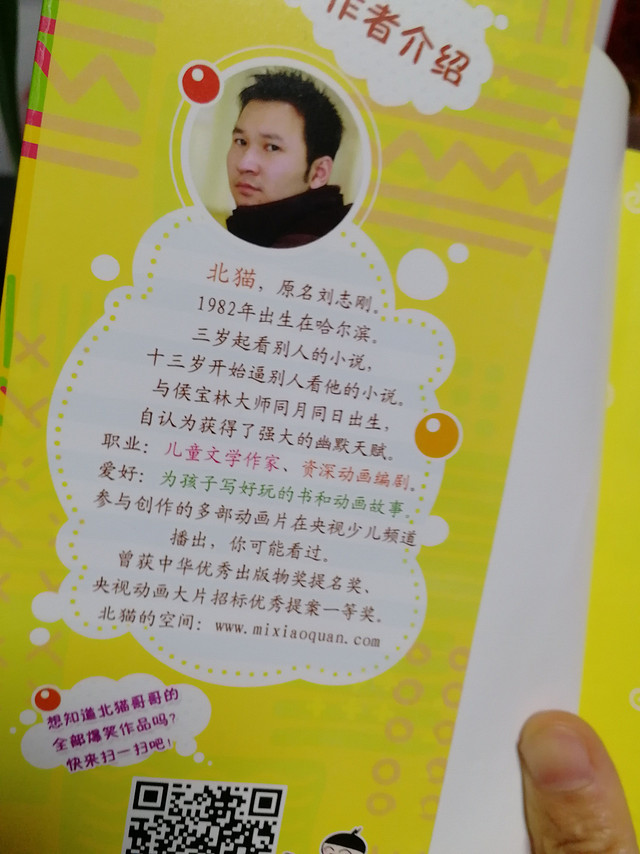 作者介绍
北猫，原名刘志刚。
1982年出生在哈尔滨。
三岁起看别人的小说，
十三岁开始逼别人看他的小说。
与侯宝林大师同月同日出生，
自认为获得了强大的幽默天赋。
职业：儿童文学作家、资深动画编剧。
爱好：为孩子写好玩的书和动画故事。
参与创作的多部动画片在央视少儿频道
播出，你可能看过。
曾获中华优秀出版物奖提名奖、
央视动画大片招标优秀提案一等奖。
北猫的空间：www.mixiaoquan.com
想知道北猫哥哥的
全部爆笑作品吗？
快来扫一扫吧！